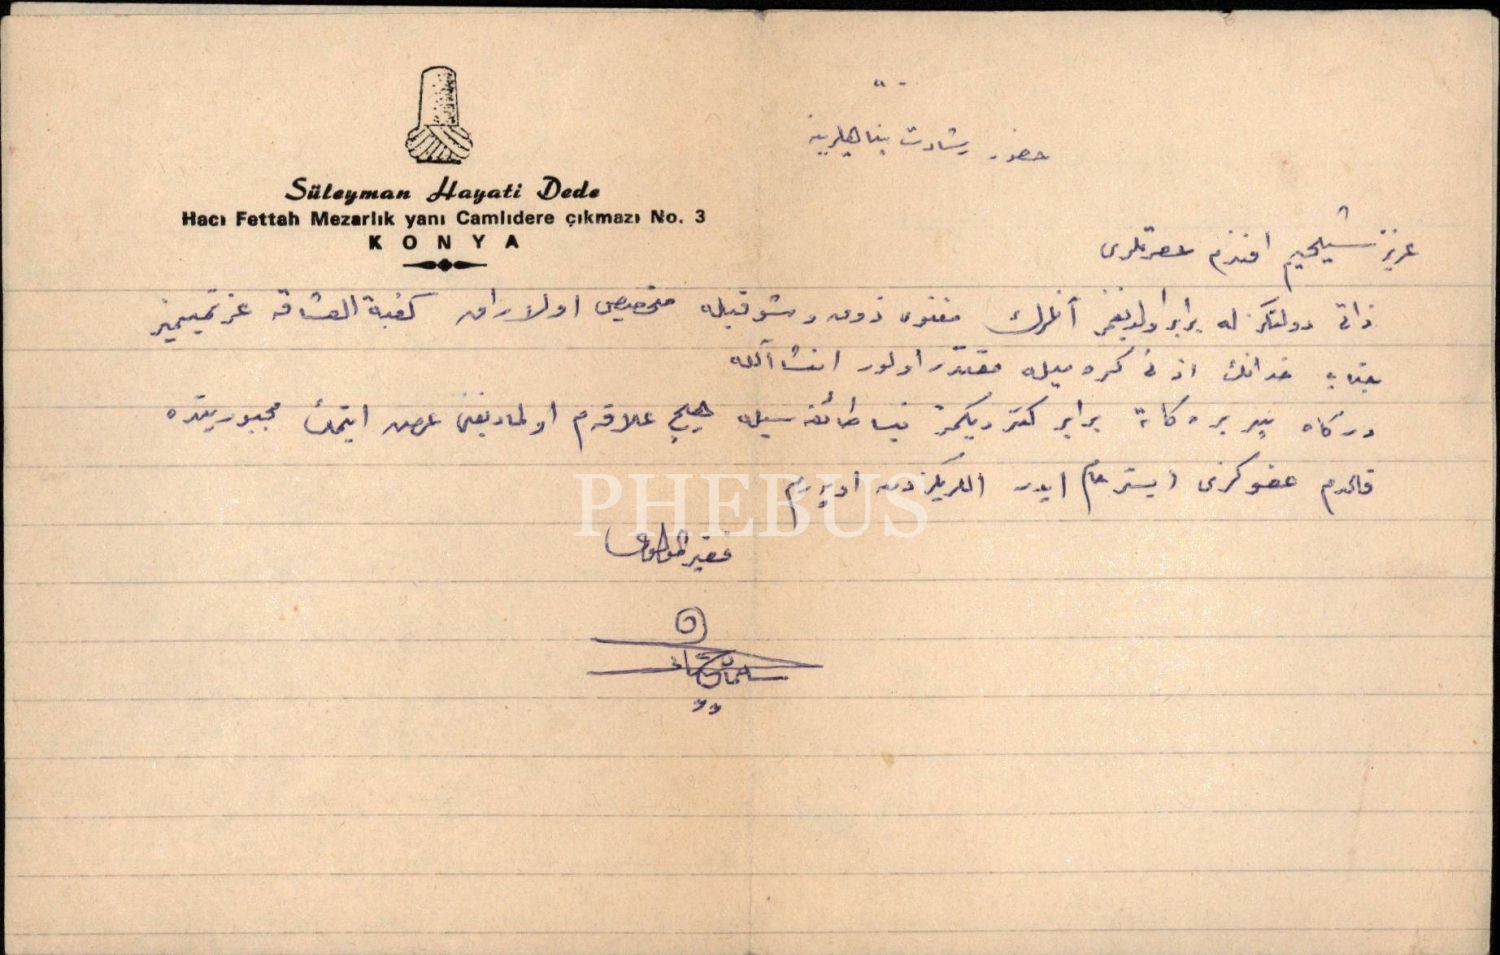 Süleyman Hayati Dede
Hacı Fettah Mezarlık yanı Camlıdere çıkmazı No. 3
KONYA
حضور رشادت پناهیلرینه
عزیز شیخیم افندم حضرتلری
ذات دولتکز له برابر اولدیغمز معنوی ذوق و شوقیله متخصص اولارق كعبة العشاقه عزیمتیمز
جناب خدانك اذن کرمیله مقتدر اولور انشاالله
درکاه پیره برابر نسا طائفه سیله هیچ علاقه م اولمادیغنی عرض ایتمك مجبوریتنده
قالدم عفوکزی استرحام ایدر اللریکزدن اوپرم
فقیر المولوی
سلیمان حیاتی
PHEBUS